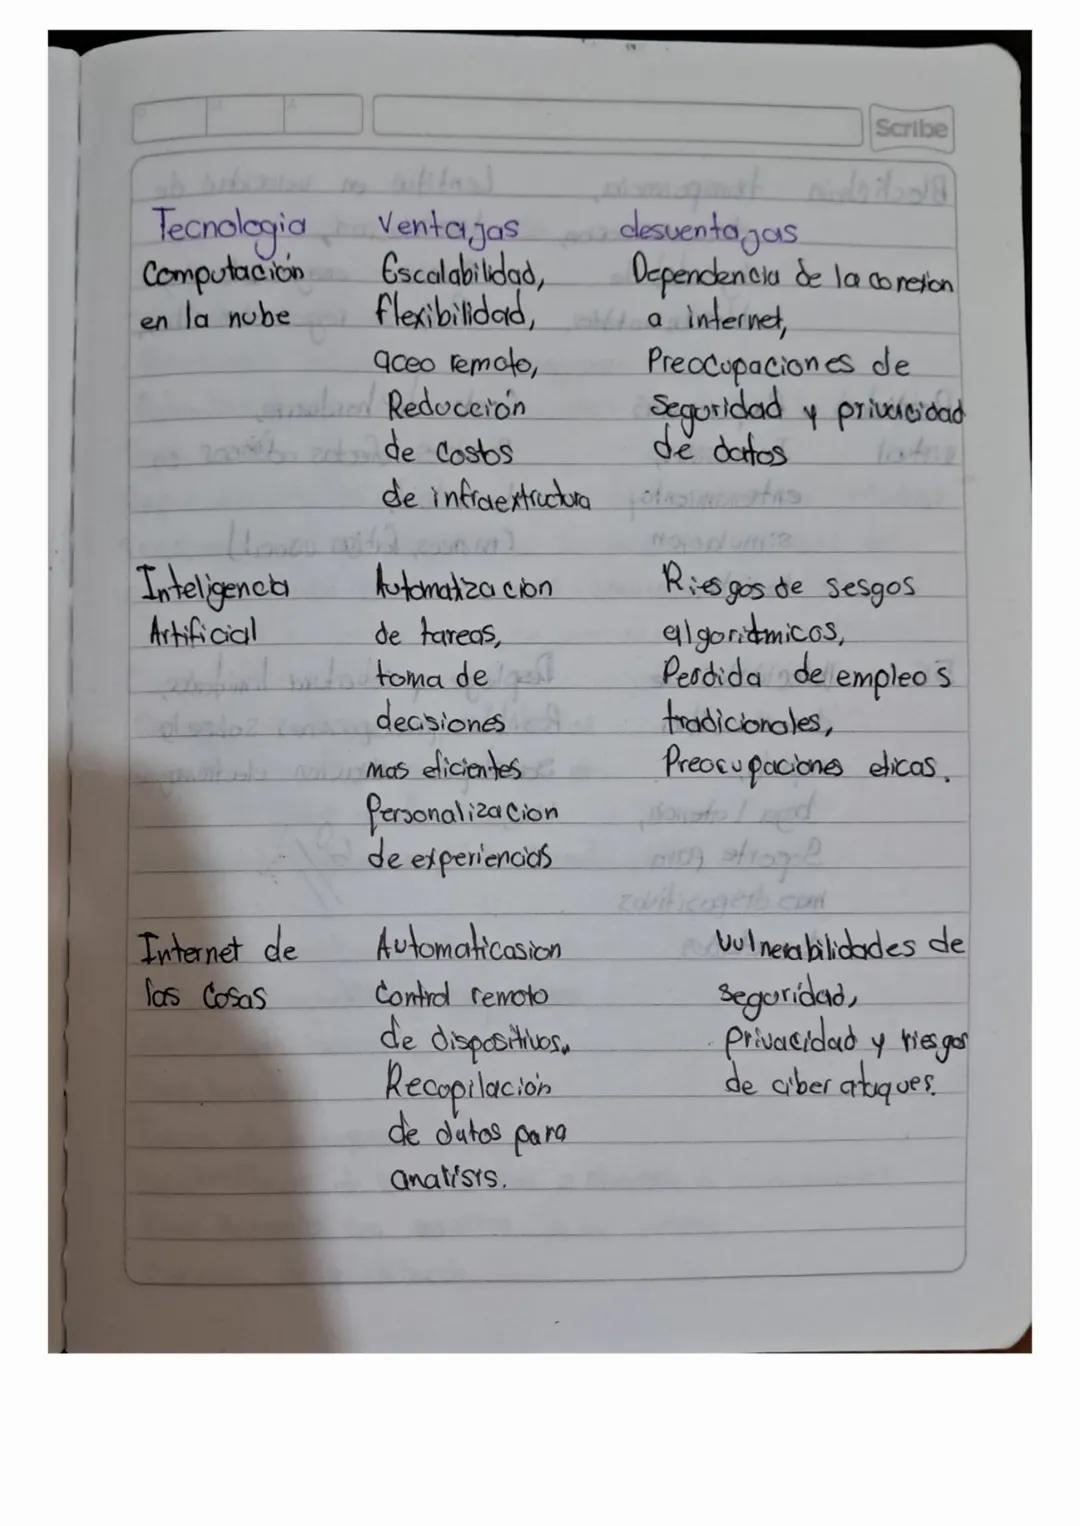 Scribe
Tecnologia Ventajas desventajas
Computación Escalabilidad, Dependencia de la conexion
en la nube flexibilidad, a internet,
aceo remoto, Preocupaciones de
Reducción seguridad y privacidad
de costos de datos
de infraextructura
Inteligencia Automatizacion Riesgos de sesgos
Artificial de tareas, algoritmicos,
toma de Perdida de empleos
decisiones tradicionales,
mas eficientes Preocupaciones eticas.
Personalizacion
de experiencias
Internet de Automaticasion Vulnerabilidades de
las cosas Control remoto seguridad,
de dispositivos, privacidad y riesgos
Recopilación de ciber ataques.
de datos para
analisis.